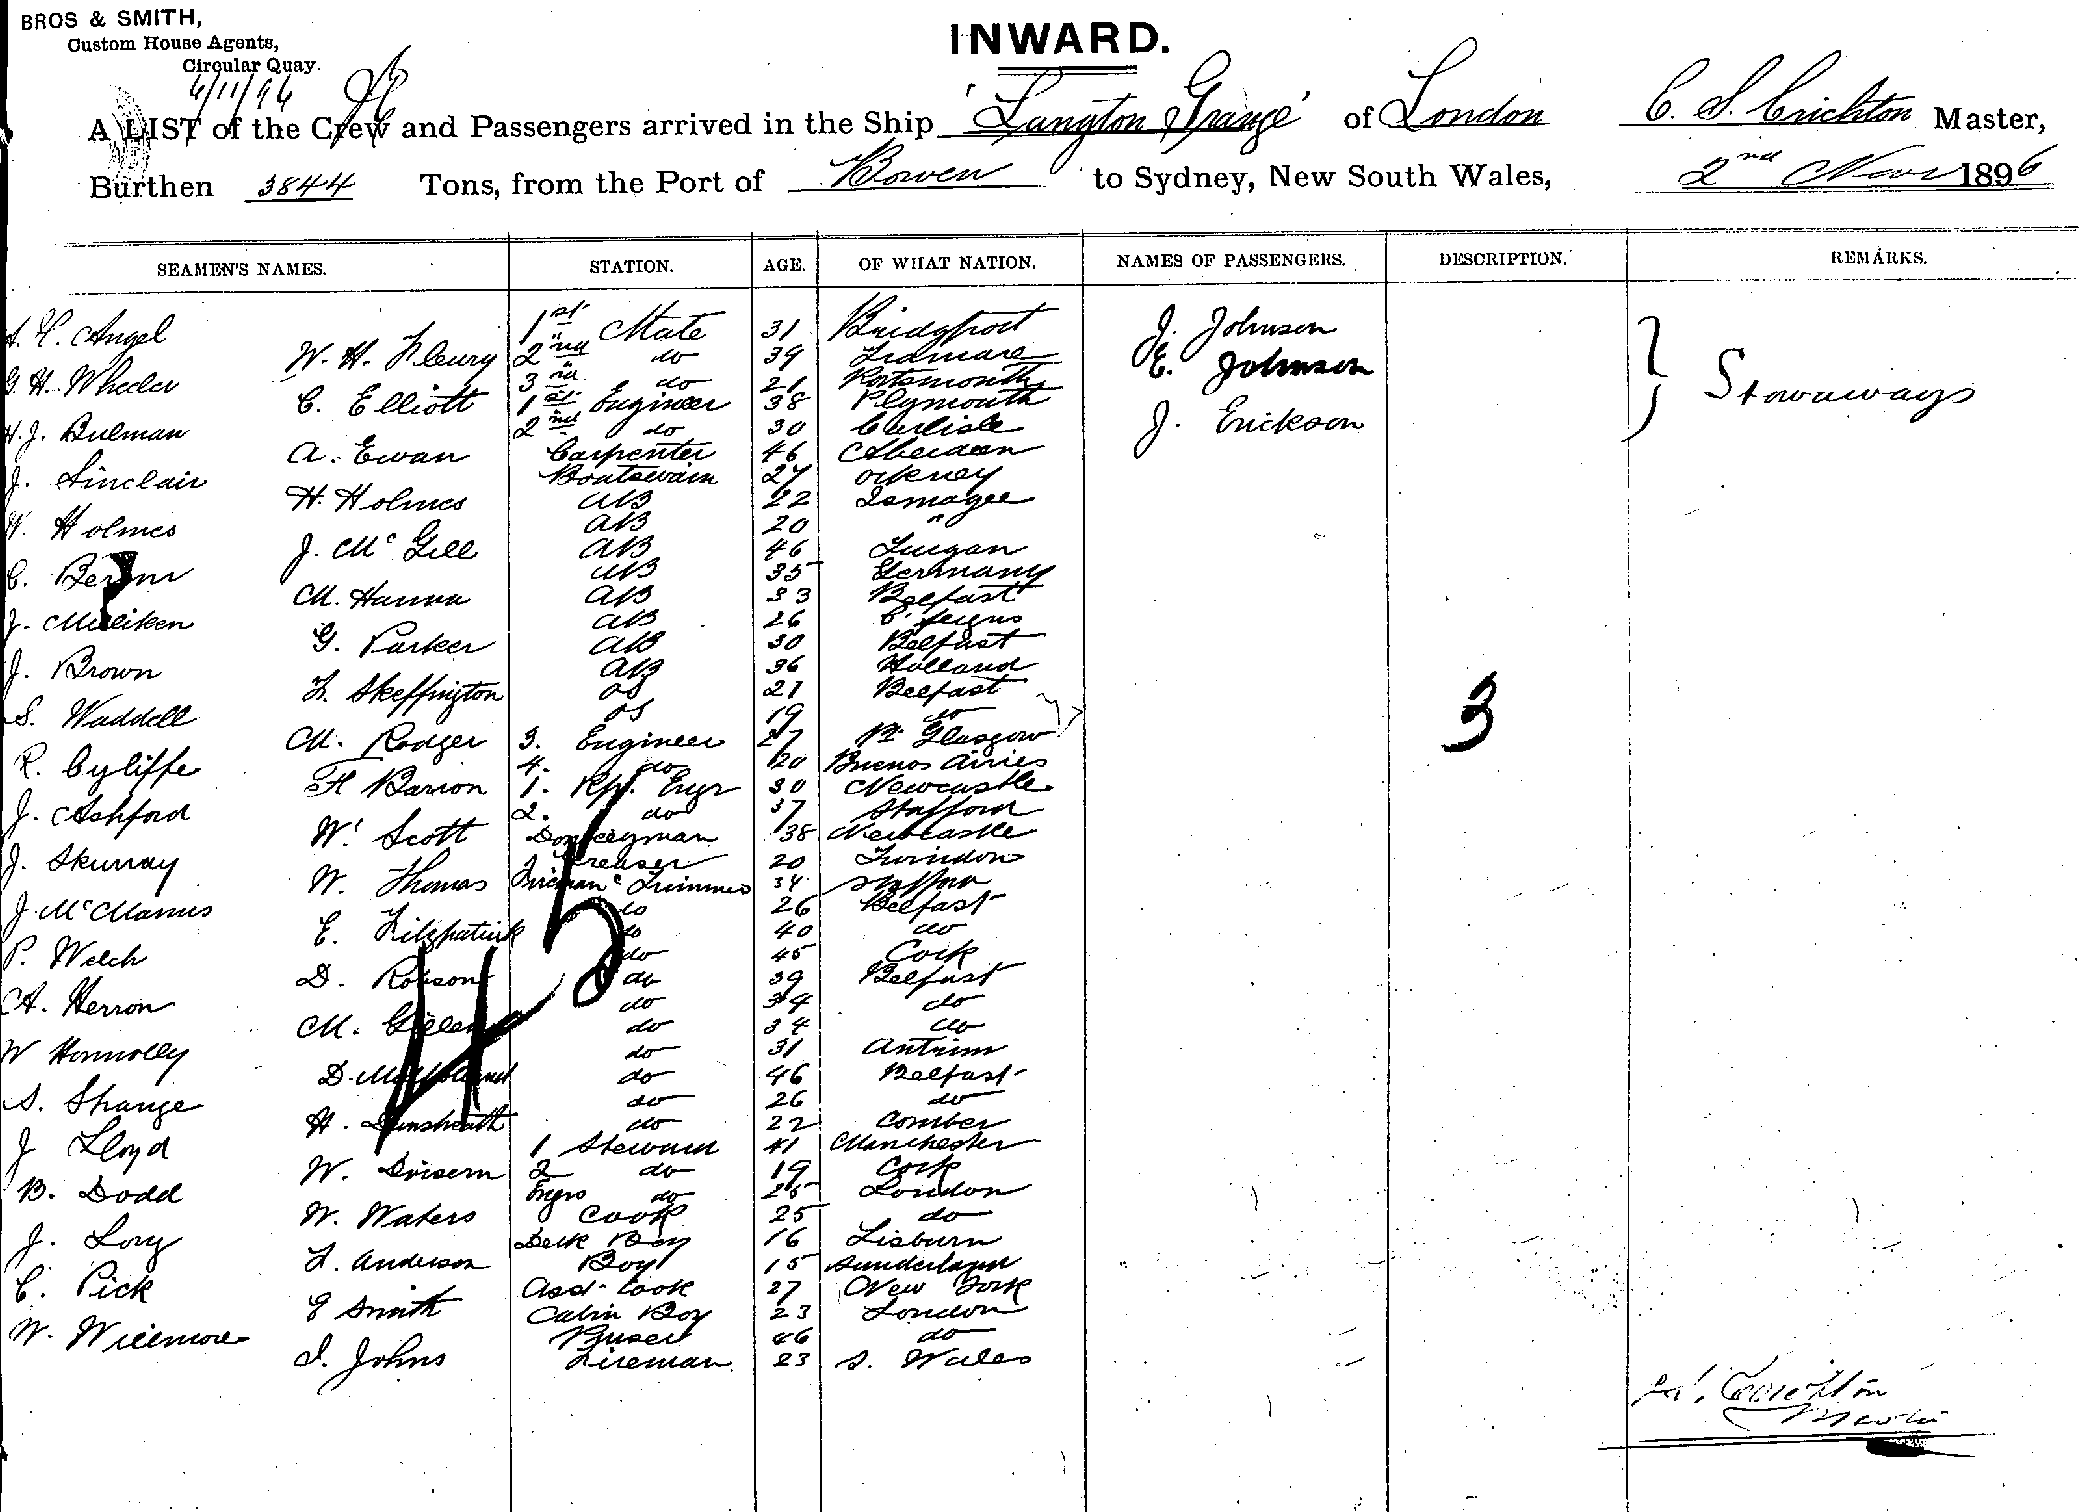 BROS & SMITH,
Custom House Agents,
Circular Quay.
INWARD.
6/11/96
A LIST of the Crew and Passengers arrived in the Ship 'Langton Grange' of London C. S. Crichton Master,
Burthen 3844 Tons, from the Port of Bowen to Sydney, New South Wales, 2nd Nov 1896
SEAMEN'S NAMES. STATION. AGE. OF WHAT NATION. NAMES OF PASSENGERS. DESCRIPTION. REMARKS.
Angel 1st Mate 31 Bridgport J. Johnson
W. H. Fleury 2nd do 39 E. Johnson
G. H. Wheeler 3rd do 21 Portsmouth Stowaways
C. Elliott 1st Engineer 38 Plymouth
H. J. Bulman 2nd do 30 Carlisle J. Erickson
A. Ewan Carpenter 46 Aberdeen
J. Sinclair Boatswain 27 Orkney
H. Holmes AB 22 Ismagee
W. Holmes AB 20 "
J. McGill AB 46 Lurgan
C. AB 35 Germany
M. Hanna AB 33 Belfast
J. Milliken AB 26 C'fergus
G. Parker AB 30 Belfast
J. Brown AB 36 Holland
F. Skeffington OS 21 Belfast
S. Waddell OS 19 do
M. Rodger 3. Engineer 27 Pt Glasgow
R. Cyliffe 4. do 20 Buenos Airies
H Barron 1. Rfr. Engr 30 Newcastle
J. Ashford 2. do 37 Stafford
W. Scott Donkeyman 38 Newcastle
J. Skurray Greaser 20 Swindon
W. Thomas Fireman & Trimmer 34
J McManus do 26 Belfast
E. Fitzpatrick do 40 do
P. Welch do 45 Cork
D. Robson do 39 Belfast
A. Herron do 34 do
M. do 34 do
W Honnolly do 31 Antrim
D. do 46 Belfast
S. Shange do 26 do
H. Dunsheath do 22 Comber
J Lloyd 1 Steward 41 Manchester
W. 2 do 19 Cork
B. Dodd Engrs do 25 London
W. Waters Cook 25 do
J. Lory Deck Boy 16 Lisburn
F. Anderson Boy 15 Sunderland
C. Pick Asst Cook 27 New York
E Smith Cabin Boy 23 London
W. Willmore Purser 46 do
I. Johns Fireman 23 S. Wales
45
3
Crichton
Master